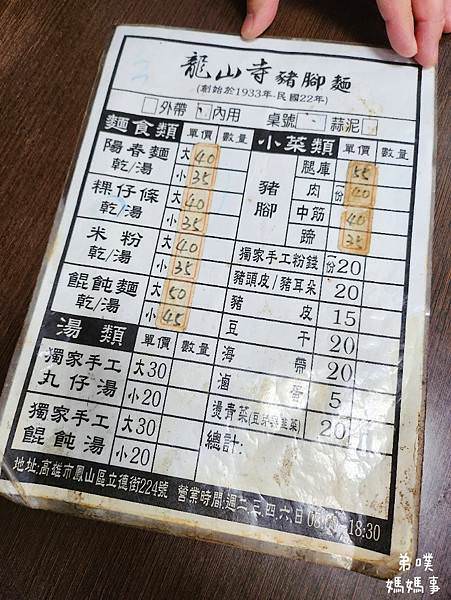 龍山寺豬腳麵
(創始於1933年-民國22年)
外帶 內用 桌號 蒜泥
麵食類 單價 數量
陽春麵 乾/湯 大 40
小 35
粿仔條 乾/湯 大 40
小 35
米粉 乾/湯 大 40
小 35
餛飩麵 乾/湯 大 50
小 45
湯類 單價 數量
獨家手工丸仔湯 大30
小20
獨家手工餛飩湯 大30
小20
小菜類 單價 數量
豬腳 腿庫 55
肉 份 40
中筋 40
蹄 35
獨家手工粉錢 份20
豬頭皮/豬耳朵 20
豬皮 15
豆干 20
海帶 20
滷蛋 5
燙青菜(豆芽與韭菜) 20
總計:
地址:高雄市鳳山區立德街224號 營業時間:週二.三.四.六.日 08:00-18:30
弟噗
媽媽事